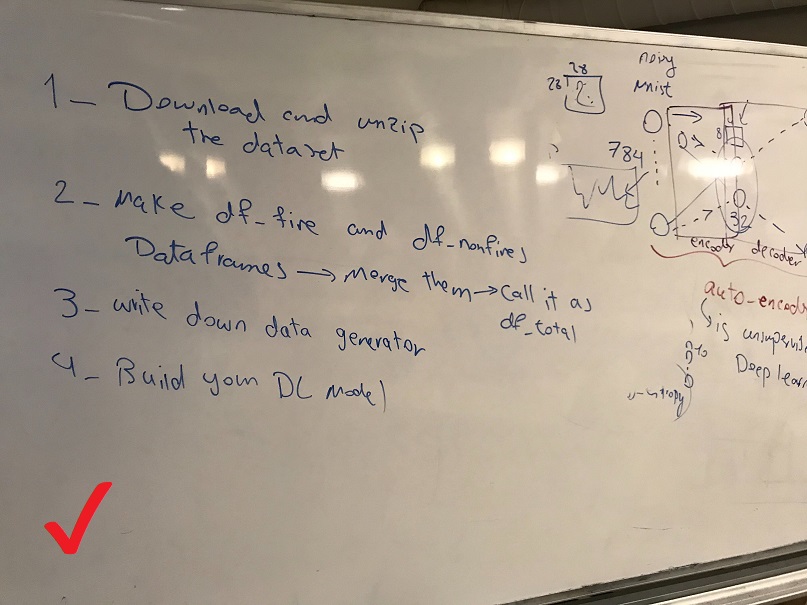 1- Download and unzip
the dataset
2- Make df_fire and df_nonfires
Dataframes → Merge them → Call it as
df_total
3- write down data generator
4- Build your DL Model
28
28
noisy
mnist
784
8
7
32
encoder decoder
auto-encod
is unsupervis
Deep learn